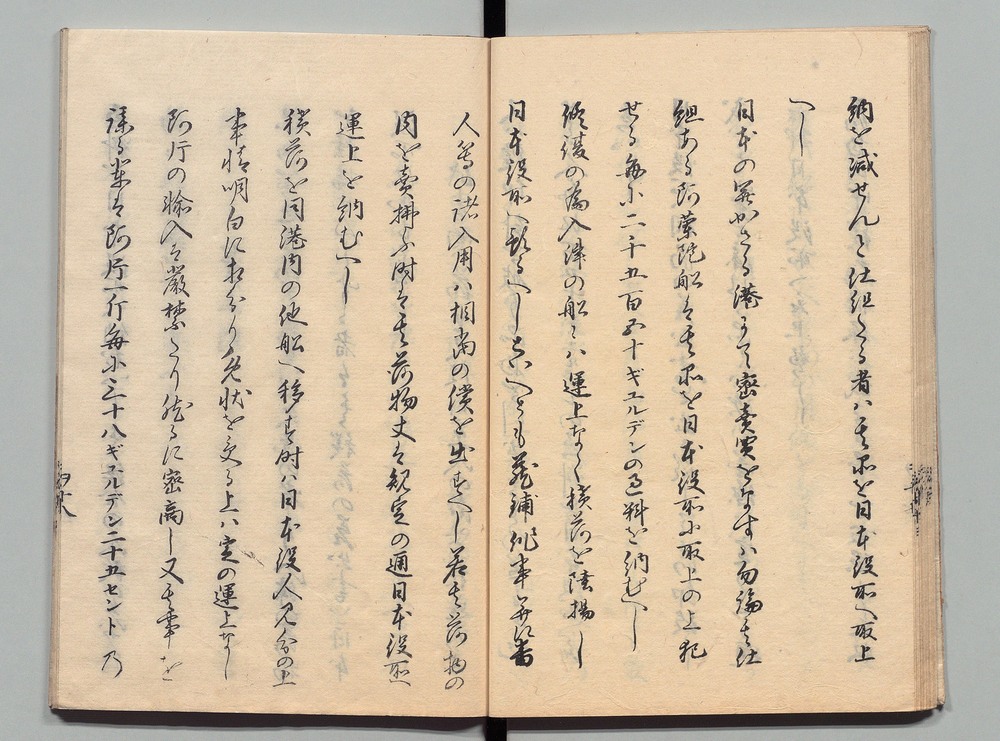 納を減せんと仕組たる者ハ其品を日本役所へ取上
へし
日本の開かさる港にて密売買をなすハ勿論其仕
組ある阿蘭陀船は其品を日本役所に取上の上犯
せる毎に二千五百五十ギエルデンの過料を納むへし
修復の為入津の船々ハ運上なく積荷を陸揚し
日本役所へ託るへし尤いへとも蔵鋪作事并に番
人等の諸入用ハ相当の償を出すへし若其荷物の
内を売拂ふ時は其荷物丈は規定の通日本役所へ
運上を納むへし
積荷を同港内の他船へ移す時ハ日本役人見分の上
事情明白に相分り免状を受る上ハ定の運上なし
阿片の輸入は厳禁たり然るに密商し又其事を
謀る輩は阿片一斤毎に三十八ギエルデン二十五セント乃